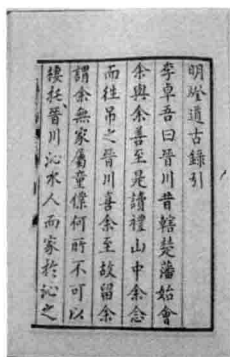 明燈道古錄引
李卓吾曰晉川昔轄楚藩始會
余與余善至是讀禮山中余念
而徃吊之晉川喜余至故留余
謂余無家屬童僕何所不可以
棲托晉川沁水人而家於沁之